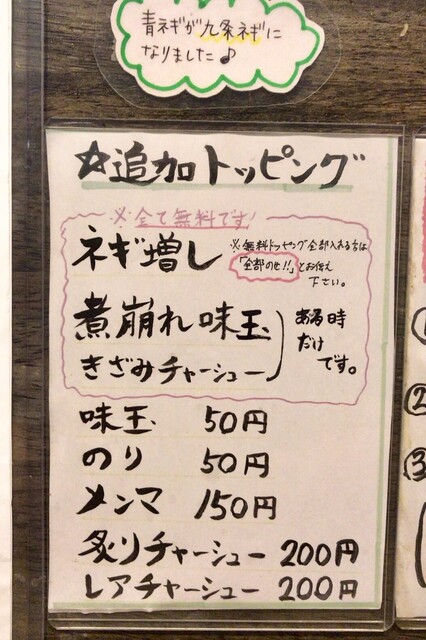 青ネギが九条ネギに
なりました♪
☆追加トッピング
※全て無料です!
ネギ増し
※無料トッピング全部入れる方は
「全部のせ!!」とお伝え
下さい。
煮崩れ味玉
きざみチャーシュー
ある時
だけ
です。
味玉 50円
のり 50円
メンマ 150円
炙りチャーシュー 200円
レアチャーシュー 200円
①
②
③